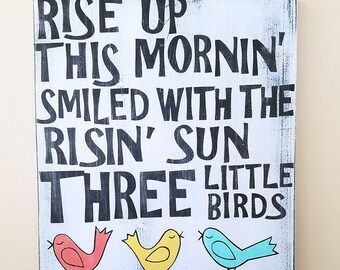 RISE UP
THIS MORNIN'
SMILED WITH THE
RISIN' SUN
THREE LITTLE
BIRDS